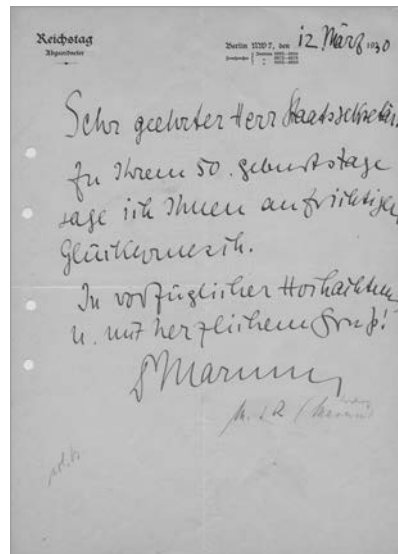 Reichstag
Abgeordneter
Berlin NW 7, den 12 März 1930
Sehr geehrter Herr Staatssekretär
Zu Ihrem 50. geburtstage
sage ich Ihnen aufrichtigen
Glückwunsch.
In vorzüglicher Hochachtung
u. mit herzlichem Gruß!
M. d. R.